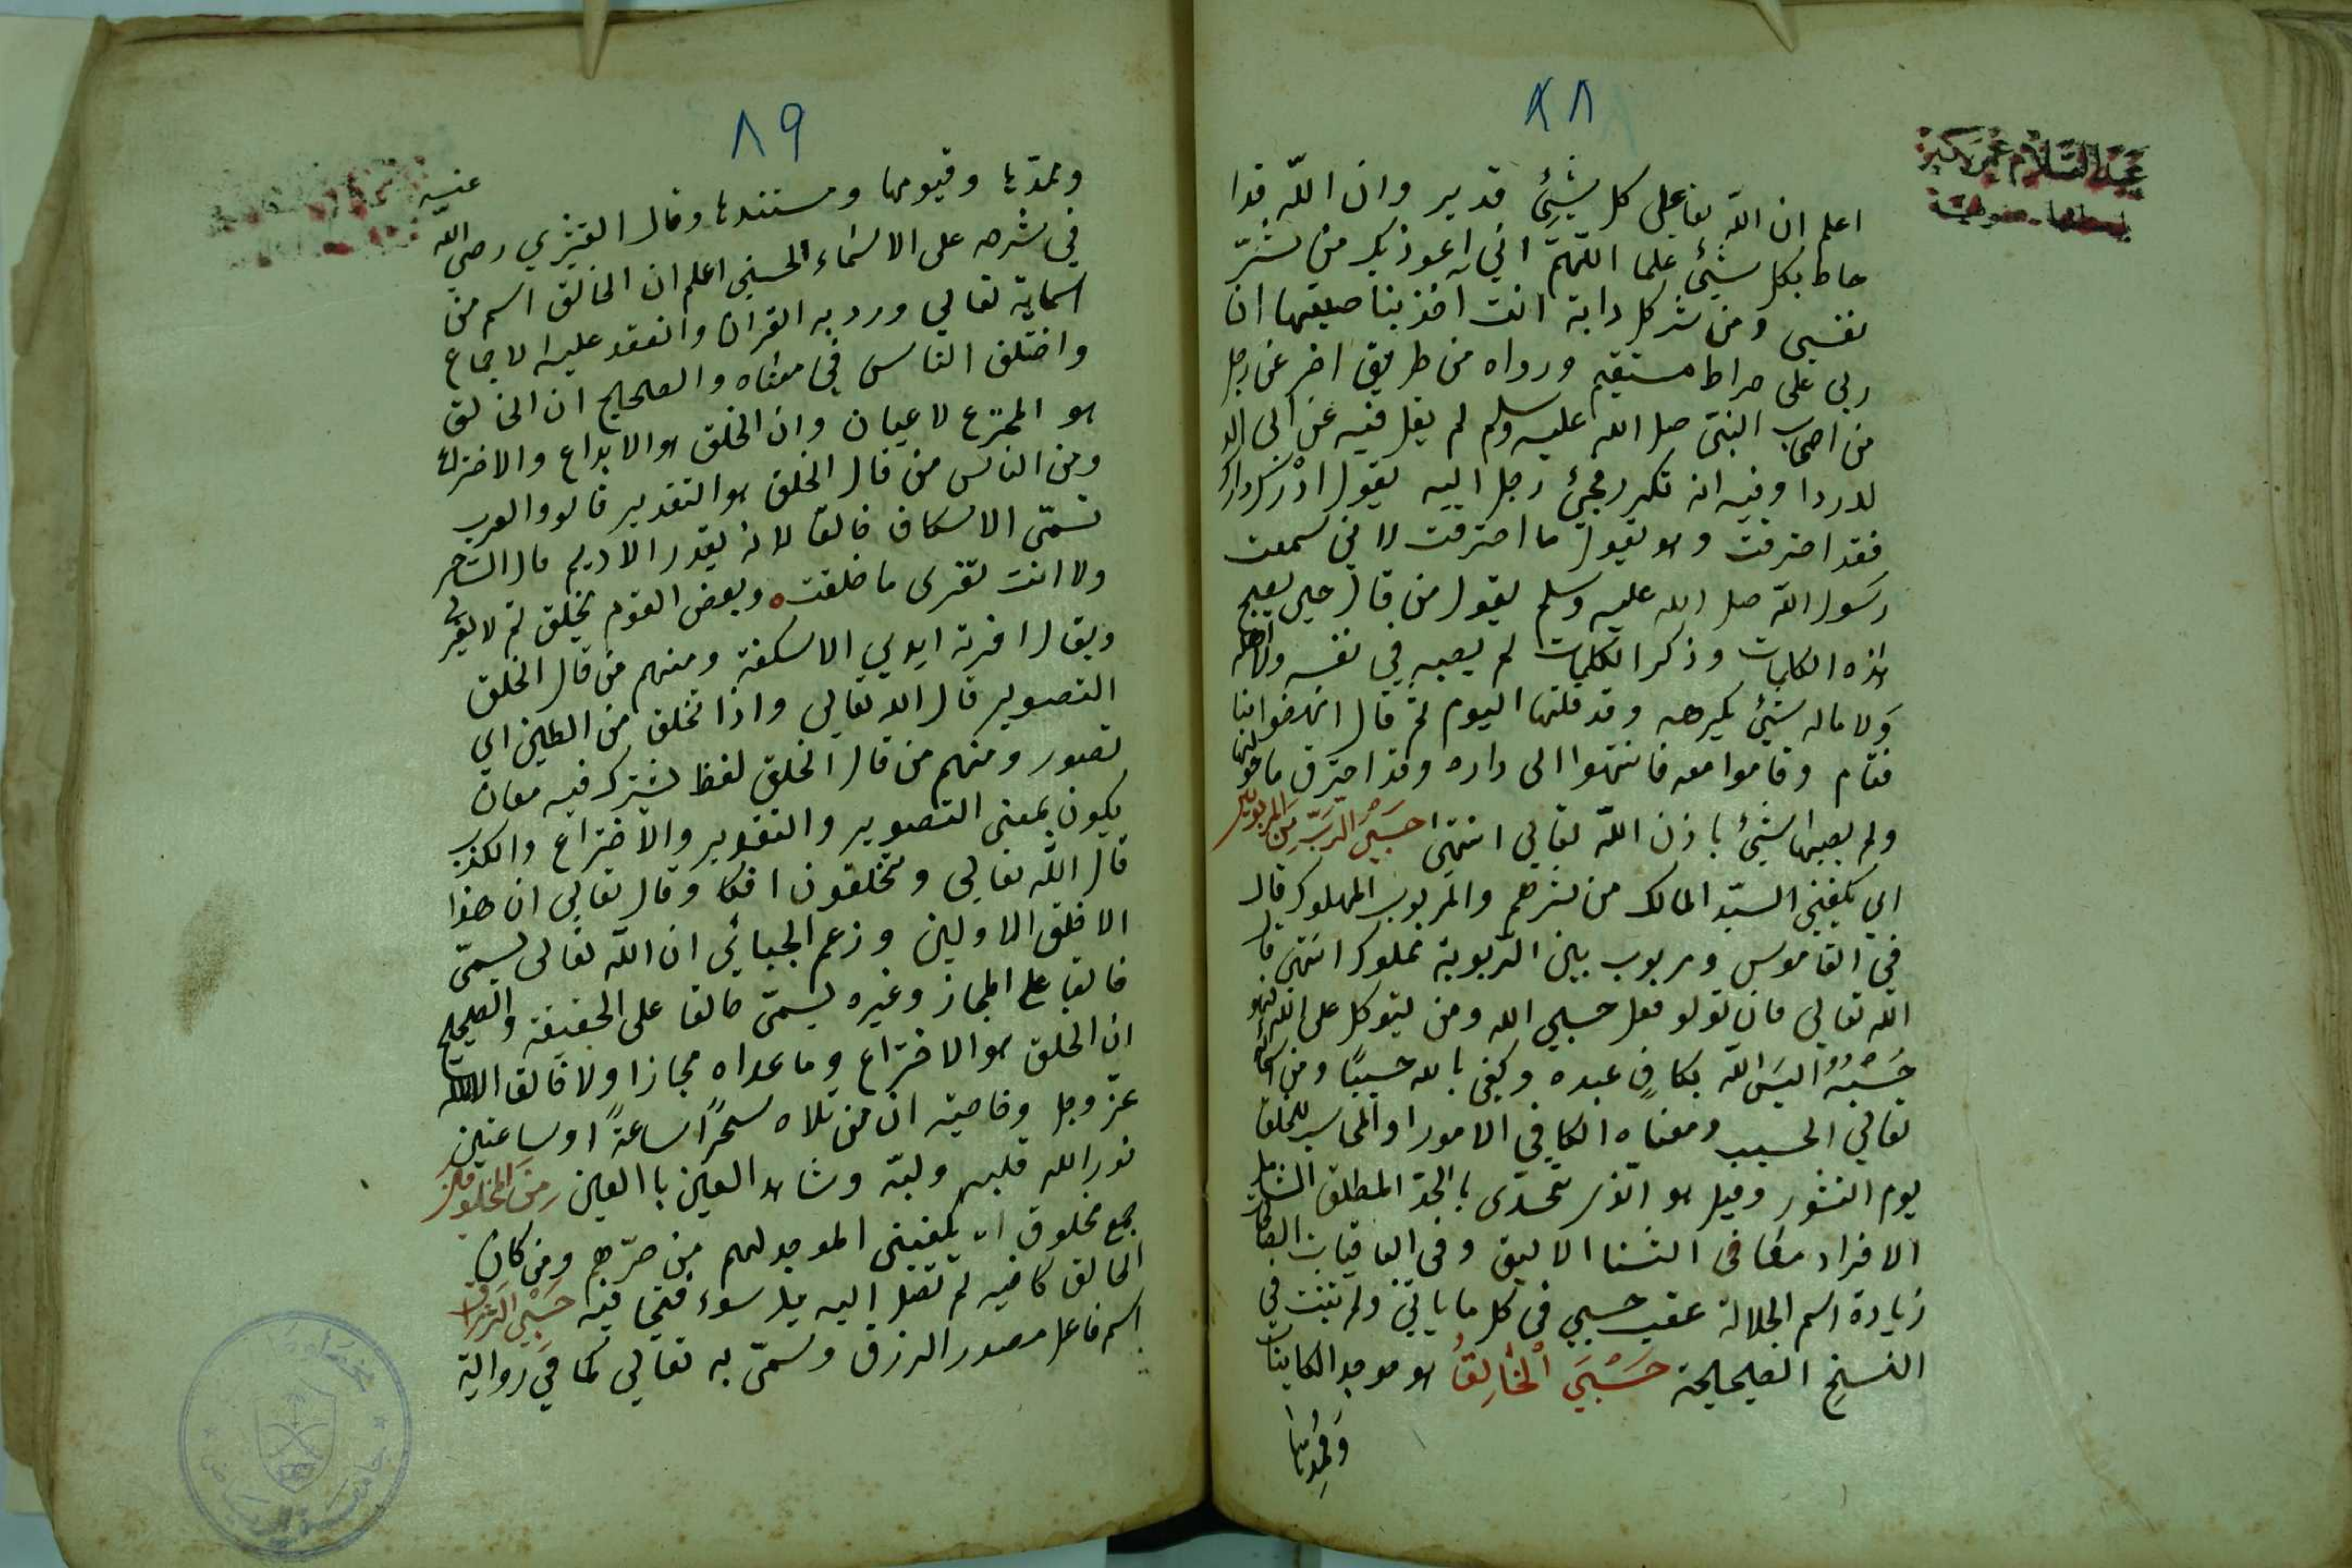 ٨٨
اعلم ان الله تعا على كل شيئ قدير وان الله قدا
حاط بكل شيئ علما اللهم اني اعوذ بك من شر
نفسي ومن شر كل دابة انت آخذ بناصيتها ان
ربى على صراط مستقيم ورواه من طريق اخر عن رجل
من اصحاب النبى صلى الله عليه وسلم لم يقل فيه عن ابى الد
لدردا وفيه انه تكرر مجيئ رجل اليه يقول ادرك دارك
فقد احترقت وهو يقول ما احترقت لاني سمعت
رسول الله صلى الله عليه وسلم يقول من قال حين يصبح
هذه الكلمات وذكر الكلمات لم يصبه في نفسه ولا اهله
ولا ماله شيئ يكرهه وقد قلتها اليوم ثم قال انهضوا بنا
فقام وقاموا معه فانتهوا الى داره وقد احترق ما حولها
ولم يصبها شيئ باذن الله تعالى انتهى حسبي الرب من المربوبين
اي يكفيني السيد المالك من شرهم والمربوب المملوك قال
في القاموس ومربوب بين الربوبة مملوك انتهى قال
الله تعالى فان تولو فقل حسبي الله ومن يتوكل على الله فهو
حسبه اليس الله بكاف عبده وكفى بالله حسيبا ومن اسمائه
تعالى الحسيب ومعناه الكافي الامور او المحاسب للخلق
يوم النشور وقيل هو الذي تحدى بالحد المطلق الشامل
الافراد مضافى الثنا الاليق وفى الباقيات الصالحات
زيادة اسم الجلالة عقب حسبي في كل ما ياتي ولم تثبت في
النسخ الصحيحة حسبي الخالق هو موجد الكاينات
وممدها
٨٩
وممدها وقيومها ومستندها وقال القشيري رضي الله عنه
في شرحه على الاسماء الحسنى اعلم ان الخالق اسم من
اسمايه تعالى ورد به القران وانعقد عليه الاجماع
واختلف الناس في معناه والصحيح ان الخالق
هو المخترع لاعيان وان الخلق هو الابداع والاختراع
ومن الناس من قال الخلق هو التقدير قالوا والعرب
تسمى الاسكاف خالقا لانه يقدر الاديم قال الشاعر
ولا انت تفرى ما خلقت وبعض القوم يخلق ثم لا يفرى
ويقال افرته ايدي الاسكفة ومنهم من قال الخلق
التصوير قال الله تعالى واذا تخلق من الطين اي
تصور ومنهم من قال الخلق لفظ يشترك فيه معان
يكون بمعنى التصوير والتقدير والاختراع والكذب
قال الله تعالى وتخلقون افكا وقال تعالى ان هذا
الا خلق الاولين وزعم الجبائي ان الله تعالى يسمى
خالقا على المجاز وغيره يسمى خالقا على الحقيقة والصحيح
ان الخلق هو الاختراع وما عداه مجازا ولا خالق الا الله
عز وجل وخاصيته ان من تلاه سحرا ساعة او ساعتين
نور الله قلبه ولبه وشاهد العين باالعين من المخلوقين
جمع مخلوق اي يكفيني الموجد لهم من ضرهم ومن كان
الخالق كافيه لم تصل اليه يد سوء فيتى فيه حسبي الرزاق
اسم فاعل مصدر الرزق وسمى به تعالى كما في رواية